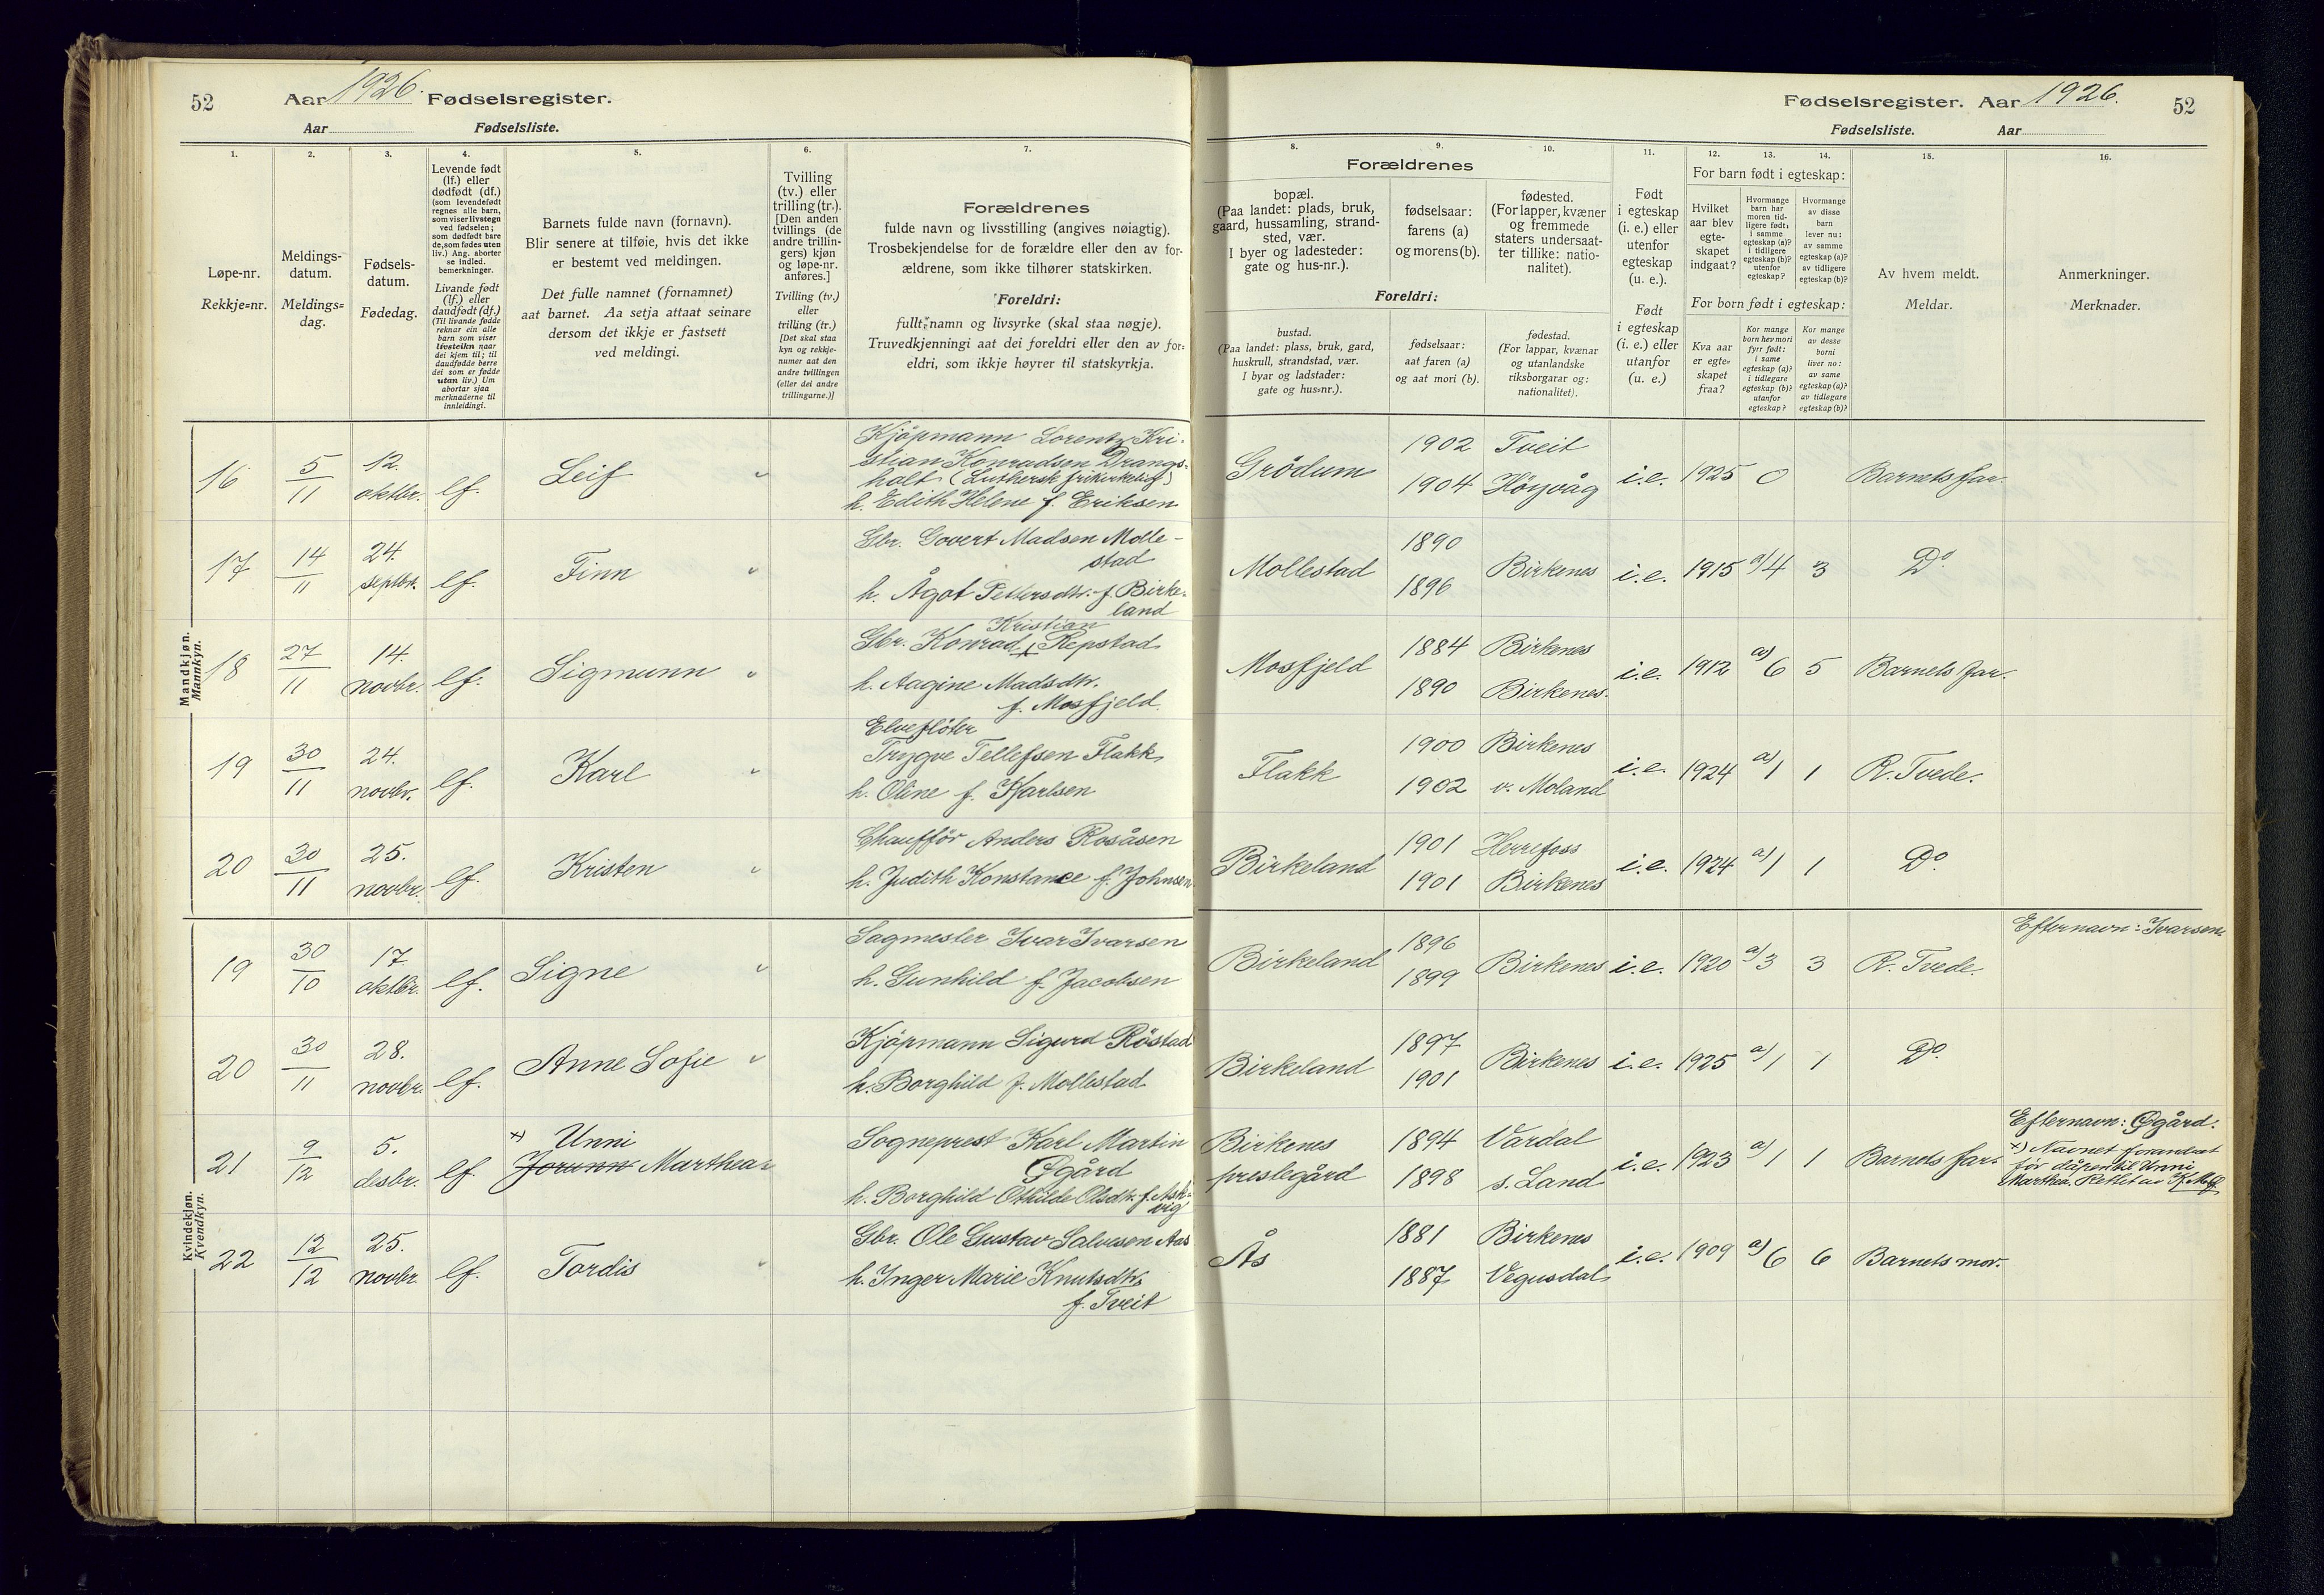 52 Aar 1926. Fødselsregister.
Aar Fødselsliste.
1. 2. 3. 4. 5. 6. 7.
Løpe-nr.
Rekkje=nr.
Meldings-
datum.
Meldings=
dag.
Fødsels-
datum.
Fødedag.
Levende født
(lf.) eller
dødfødt (df.)
(som levendefødt
regnes alle barn,
som viser livstegn
ved fødselen;
som dødfødt bare
de, som fødes uten
liv.) Ang. aborter
se indled.
bemerkninger.
Livande født
(lf.) eller
daudfødt (df.)
(Til livande fødde
reknar ein alle
barn som viser
livsteikn naar
dei kjem til; til
daudfødde berre
dei som er fødde
utan liv.) Um
abortar sjaa
merknaderne til
innleidingi.
Barnets fulde navn (fornavn).
Blir senere at tilføie, hvis det ikke
er bestemt ved meldingen.
Det fulle namnet (fornamnet)
aat barnet. Aa setja attaat seinare
dersom det ikkje er fastsett
ved meldingi.
Tvilling
(tv.) eller
trilling (tr.).
[Den anden
tvillings (de
andre trillin-
gers) kjøn
og løpe-nr.
anføres.]
Tvilling (tv.)
eller
trilling (tr.)
[Det skal staa
kyn og rekkje-
numer aat den
andre tvillingen
(eller dei andre
trillingarne.)]
Forældrenes
fulde navn og livsstilling (angives nøiagtig).
Trosbekjendelse for de forældre eller den av for-
ældrene, som ikke tilhører statskirken.
Foreldri:
fullt namn og livsyrke (skal staa nøgje).
Truvedkjenningi aat dei foreldri eller den av for-
eldri, som ikkje høyrer til statskyrkja.
Mandkjøn.
Mannkyn.
16 5/11 12. oktbr. lf. Leif "
Kjöpmann Lorentz Kri-
stian Konradsen Drangs-
holt (Luthersk frikirkelig)
h. Edith Helene f. Eriksen
17 14/11 24. septbr. lf. Finn "
Gbr. Govert Madsen Molle-
stad
h. Ågot Pettersdtr. f. Birke-
land
18 27/11 14. novbr. lf. Sigmunn "
Kristian
Gbr. Konrad Repstad
h. Aagine Madsdtr.
f. Mosfjeld.
19 30/11 24. novbr. lf. Karl "
Elveflöter
Trygve Tellefsen Flakk
h. Oline f. Karlsen
20 30/11 25. novbr. lf. Kristen "
Chaufför Anders Rosåsen
h. Judith Konstance f. Johnsen
Kvindekjøn.
Kvendkyn.
19 30/10 17. oktbr. lf. Signe "
Sagmester Ivar Ivarsen
h. Gunhild f. Jacobsen
20 30/11 28. novbr. lf. Anne Sofie "
Kjöpmann Sigurd Röstad
h. Borghild f. Mollestad
21 9/12 5. desbr. lf. x) Unni
Jorunn Marthea
Sogneprest Karl Martin
Øgård
h. Borghild Othilde Olsdtr. f. Ask-
vig
22 12/12 25. novbr. lf. Tordis "
Gbr. Ole Gustav Salvesen Aas
h. Inger Marie Knutsdtr.
f. Tveit
Fødselsregister. Aar 1926. 52
Fødselsliste. Aar
8. 9. 10. 11. 12. 13. 14. 15. 16.
Forældrenes
bopæl.
(Paa landet: plads, bruk,
gaard, hussamling, strand-
sted, vær.
I byer og ladesteder:
gate og hus-nr.).
fødselsaar:
farens (a)
og morens (b).
fødested.
(For lapper, kvæner
og fremmede
staters undersaat-
ter tillike: natio-
nalitet).
Foreldri:
bustad.
(Paa landet: plass, bruk, gard,
huskrull, strandstad, vær.
I byar og ladstader:
gate og hus=nr.).
fødselsaar:
aat faren (a)
og aat mori (b).
fødestad.
(For lappar, kvænar
og utanlandske
riksborgarar og:
nationalitet).
Født
i egteskap
(i. e.) eller
utenfor
egteskap
(u. e.).
Født
i egteskap
(i. e.) eller
utanfor
(u. e.)
For barn født i egteskap:
Hvilket
aar blev
egte-
skapet
indgaat?
Hvormange
barn har
moren tid-
ligere født:
i samme
egteskap (a)?
i tidligere
egteskap (b)?
utenfor
egteskap?
Hvormange
av disse
barn
lever nu:
av samme
egteskap (a)?
av tidligere
egteskap (b)?
For born født i egteskap:
Kva aar
er egte=
skapet
fraa?
Kor mange
born hev mori
fyrr født:
i same
egteskap (a)?
i tidlegare
egteskap (b)?
utanfor
egteskap?
Kor mange
av desse
borni
liver no:
av same
egteskap (a)?
av tidlegare
egteskap (b)?
Av hvem meldt.
Meldar.
Anmerkninger.
Merknader.
Grödum 1902 Tveit
1904 Höyvåg i.e. 1925 0 Barnets far.
Mollestad 1890
1896 Birkenes i.e. 1915 a/4 3 Do.
Mosfjeld 1884 Birkenes
1890 Birkenes. i.e. 1912 a) 6 5 Barnets far.
Flakk 1900 Birkenes
1902 v. Moland i.e. 1924 a) 1 1 R. Tvede.
Birkeland 1901 Herrefoss
1901 Birkenes i.e. 1924 a) 1 1 Do.
Efternavn: Ivarsen.
Birkeland 1896
1899 Birkenes i.e. 1920 a) 3 3 R. Tvede.
Birkeland 1897
1901 Birkenes i.e. 1925 a) 1 1 Do.
Birkenes
prestegård 1894 Vardal
1898 s. Land i.e. 1923 a) 1 1 Barnets far.
Efternavn: Øgård.
x) Navnet forandret
før dåpen til Unni
Marthea. Rettet av
Ås 1881 Birkenes
1887 Vegusdal i.e. 1909 a) 6 6 Barnets mor.